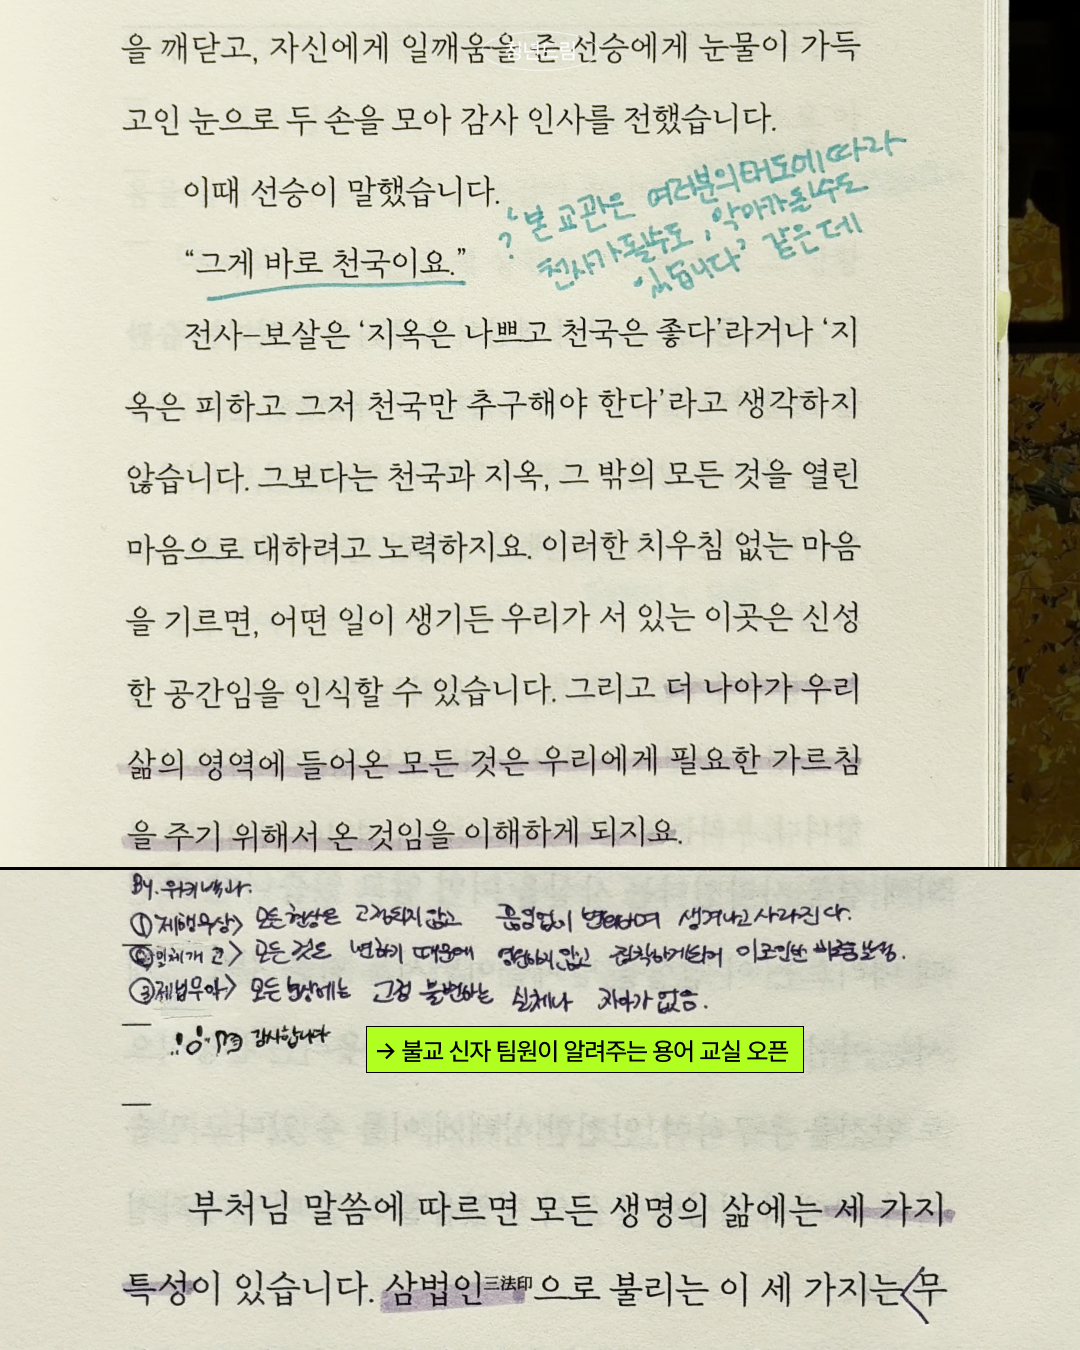 을 깨닫고, 자신에게 일깨움을 준 선승에게 눈물이 가득
고인 눈으로 두 손을 모아 감사 인사를 전했습니다.
이때 선승이 말했습니다.
“그게 바로 천국이요.”
? ‘본 교관은 여러분의 태도에 따라
천사가 될 수도, 악마가 될 수도
있습니다’ 같은데
전사–보살은 ‘지옥은 나쁘고 천국은 좋다’라거나 ‘지
옥은 피하고 그저 천국만 추구해야 한다’라고 생각하지
않습니다. 그보다는 천국과 지옥, 그 밖의 모든 것을 열린
마음으로 대하려고 노력하지요. 이러한 치우침 없는 마음
을 기르면, 어떤 일이 생기든 우리가 서 있는 이곳은 신성
한 공간임을 인식할 수 있습니다. 그리고 더 나아가 우리
삶의 영역에 들어온 모든 것은 우리에게 필요한 가르침
을 주기 위해서 온 것임을 이해하게 되지요.
By. 위키백과.
① 제행무상> 모든 현상은 고정되지 않고 끊임없이 변화하며 생겨나고 사라진다.
② 일체개고> 모든 것은 변하기 때문에 영원하지 않고 집착하게되어 이로인한
③ 제법무아> 모든 현상에는 고정 불변하는 실체나 자아가 없음.
감사합니다
→ 불교 신자 팀원이 알려주는 용어 교실 오픈
부처님 말씀에 따르면 모든 생명의 삶에는 세 가지
특성이 있습니다. 삼법인三法印으로 불리는 이 세 가지는 무